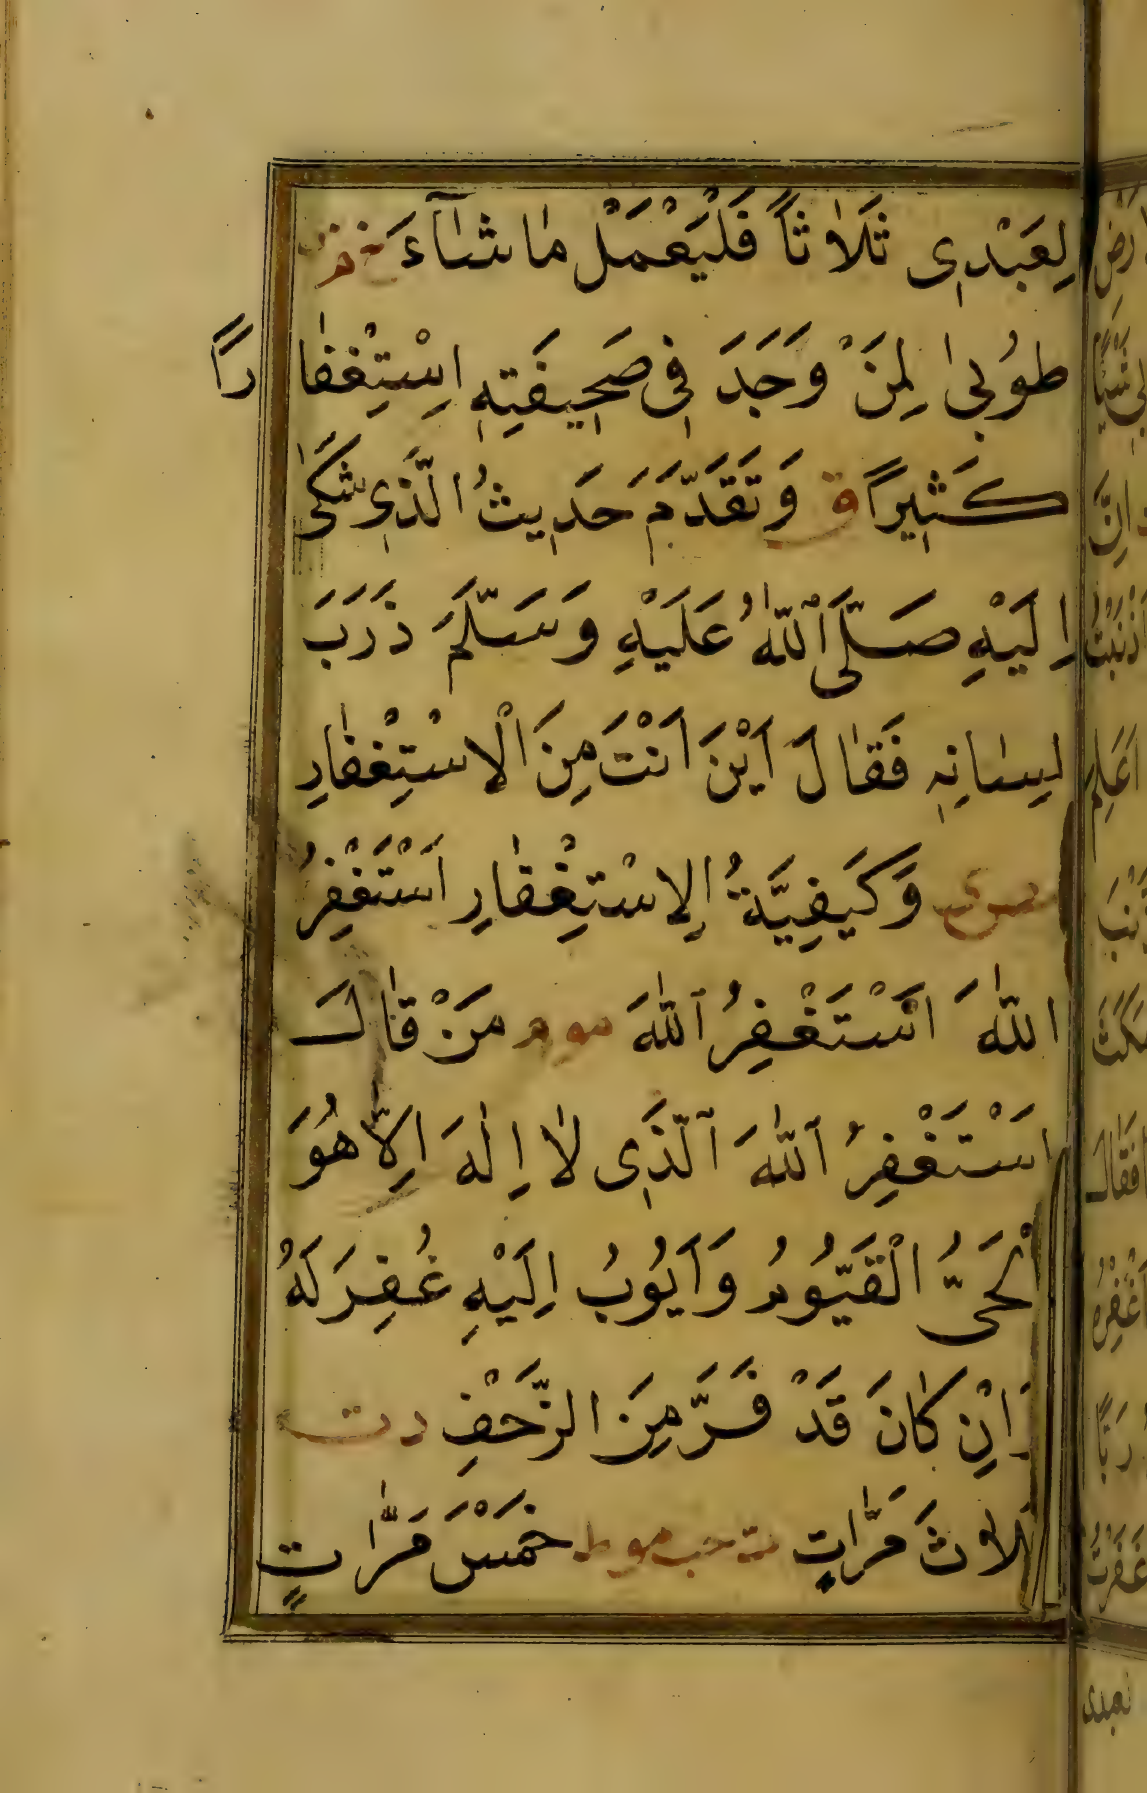 لِعَبْدِى ثَلَاثاً فَلْيَعْمَلْ مَا شَآءَ خ م س
طُوبىٰ لِمَنْ وَجَدَ فِى صَحِيفَتِهِ اِسْتِغْفَاراً
كَثِيراً ق وَتَقَدَّمَ حَدِيثُ الَّذِى شَكٰى
اِلَيْهِ صَلَّى اللّٰهُ عَلَيْهِ وَسَلَّمَ ذَرَبَ
لِسَانِهِ فَقَالَ اَيْنَ اَنْتَ مِنَ الْاِسْتِغْفَارِ
مص ى وَكَيْفِيَّةُ الِاسْتِغْفَارِ اَسْتَغْفِرُ
اللّٰهَ اَسْتَغْفِرُ اللّٰهَ مو م مَنْ قَالَ
اَسْتَغْفِرُ اللّٰهَ الَّذِى لَا اِلٰهَ اِلَّا هُوَ
الْحَىُّ الْقَيُّومُ وَاَتُوبُ اِلَيْهِ غُفِرَ لَهُ
وَاِنْ كَانَ قَدْ فَرَّ مِنَ الزَّحْفِ د ت
ثَلَاثَ مَرَّاتٍ ت حب مو ط خَمْسَ مَرَّاتٍ